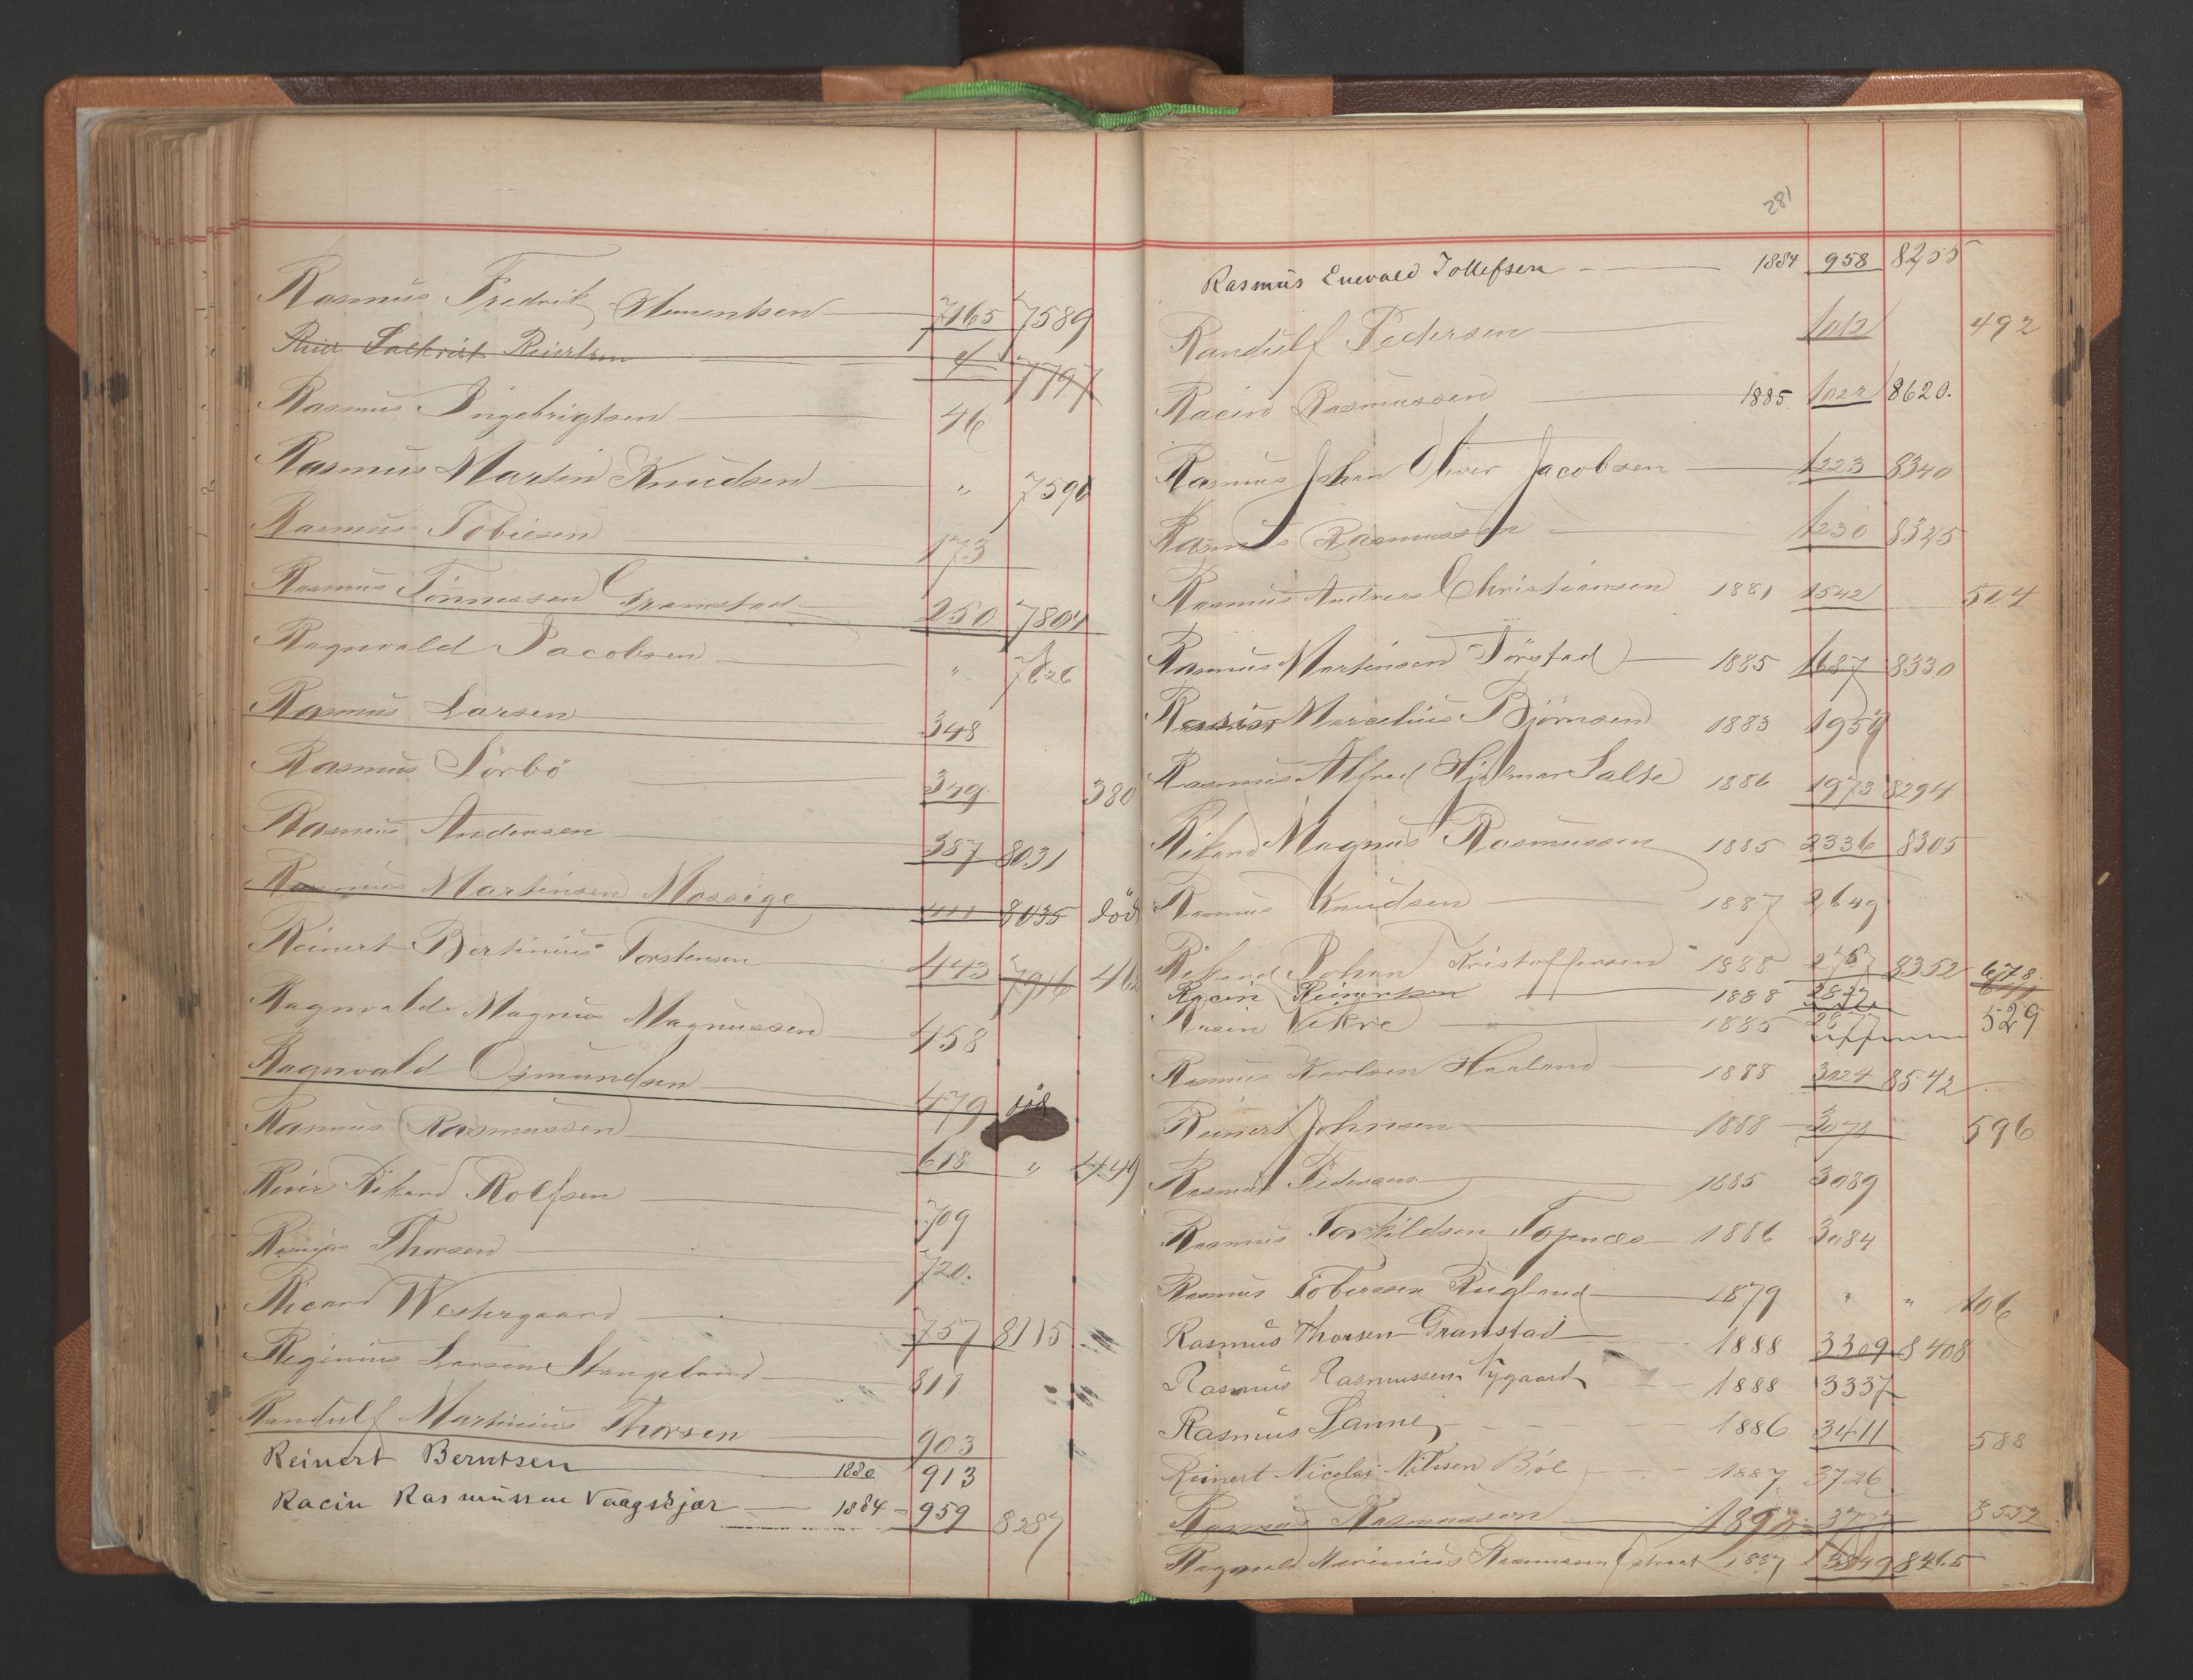 Rasmus Fredrik Clementsen 7165 7589
Lauritz Reiertsen 7797
Rasmus Ingebrigtsen 46
Rasmus Martin Knudsen " 7590
Rasmus Tobiesen 173
Rasmus Tönnessen Gramstad 250 7804
Ragnvald Jacobsen " 7826
Rasmus Larsen 348
Rasmus Sörbö 349 380
Rasmus Andersen 387 8031
Rasmus Martinsen Mossige 411 8035 död
Reinert Bertinius Torstensen 443 7916
Ragnvald Magnus Magnussen 458
Ragnvald Osmundsen 479
Rasmus Rasmussen 618 " 449
Reier Rikard Rolfsen 709
Thorsen 720.
Ricard Westergaard 757 8115
Reginius Larsen Stangeland 811
Randulf Martinius Thorsen 903
Reinert Berntsen 1880 913
Racin Rasmussen Vaagskjær 1884 959 8287
281
Rasmus Enevald Tollefsen 1884 958 8255
Randulf Pedersen 1012 492
Racin Rasmussen 1885 1022 8620.
Rasmus Johan Oliver Jacobsen 1223 8340
Rasmus Rasmussen 1230 8325
Rasmus Andreas Christiansen 1881 1542 504
Rasmus Martinsen Törstad 1885 1687 8330
Marselius Björnsen 1883 1959
Rasmus Alfred Hjalmar Salte 1886 1973 8294
Rikard Magnus Rasmussen 1885 2336 8305
Rasmus Knudsen 1887 2649
Rikard Johan Kristoffersen 1888 2757 8352 678.
Racin Reinertsen 1888 2827
Racin Vikre 1885 2877 529
Rasmus Karlsen Haaland 1888 3024 8542
Reinert Johnsen 1888 3078 596
Rasmus Pedersen 1885 3089
Rasmus Torkildsen Topnæs 1886 3084
Rasmus Tobiassen Fuglund 1879 " " 106
Rasmus Thorsen Granstad 1888 3309 8408
Rasmus Rasmussen Nygaard 1888 3337
Rasmus Lanne 1886 3411 588
Reinert Nicolai Nilssen Böe 1887 3726
Rasmus Rasmussen 1890 3777 3552
Ragnvald Marinius Rasmussen 1887 3849 8465